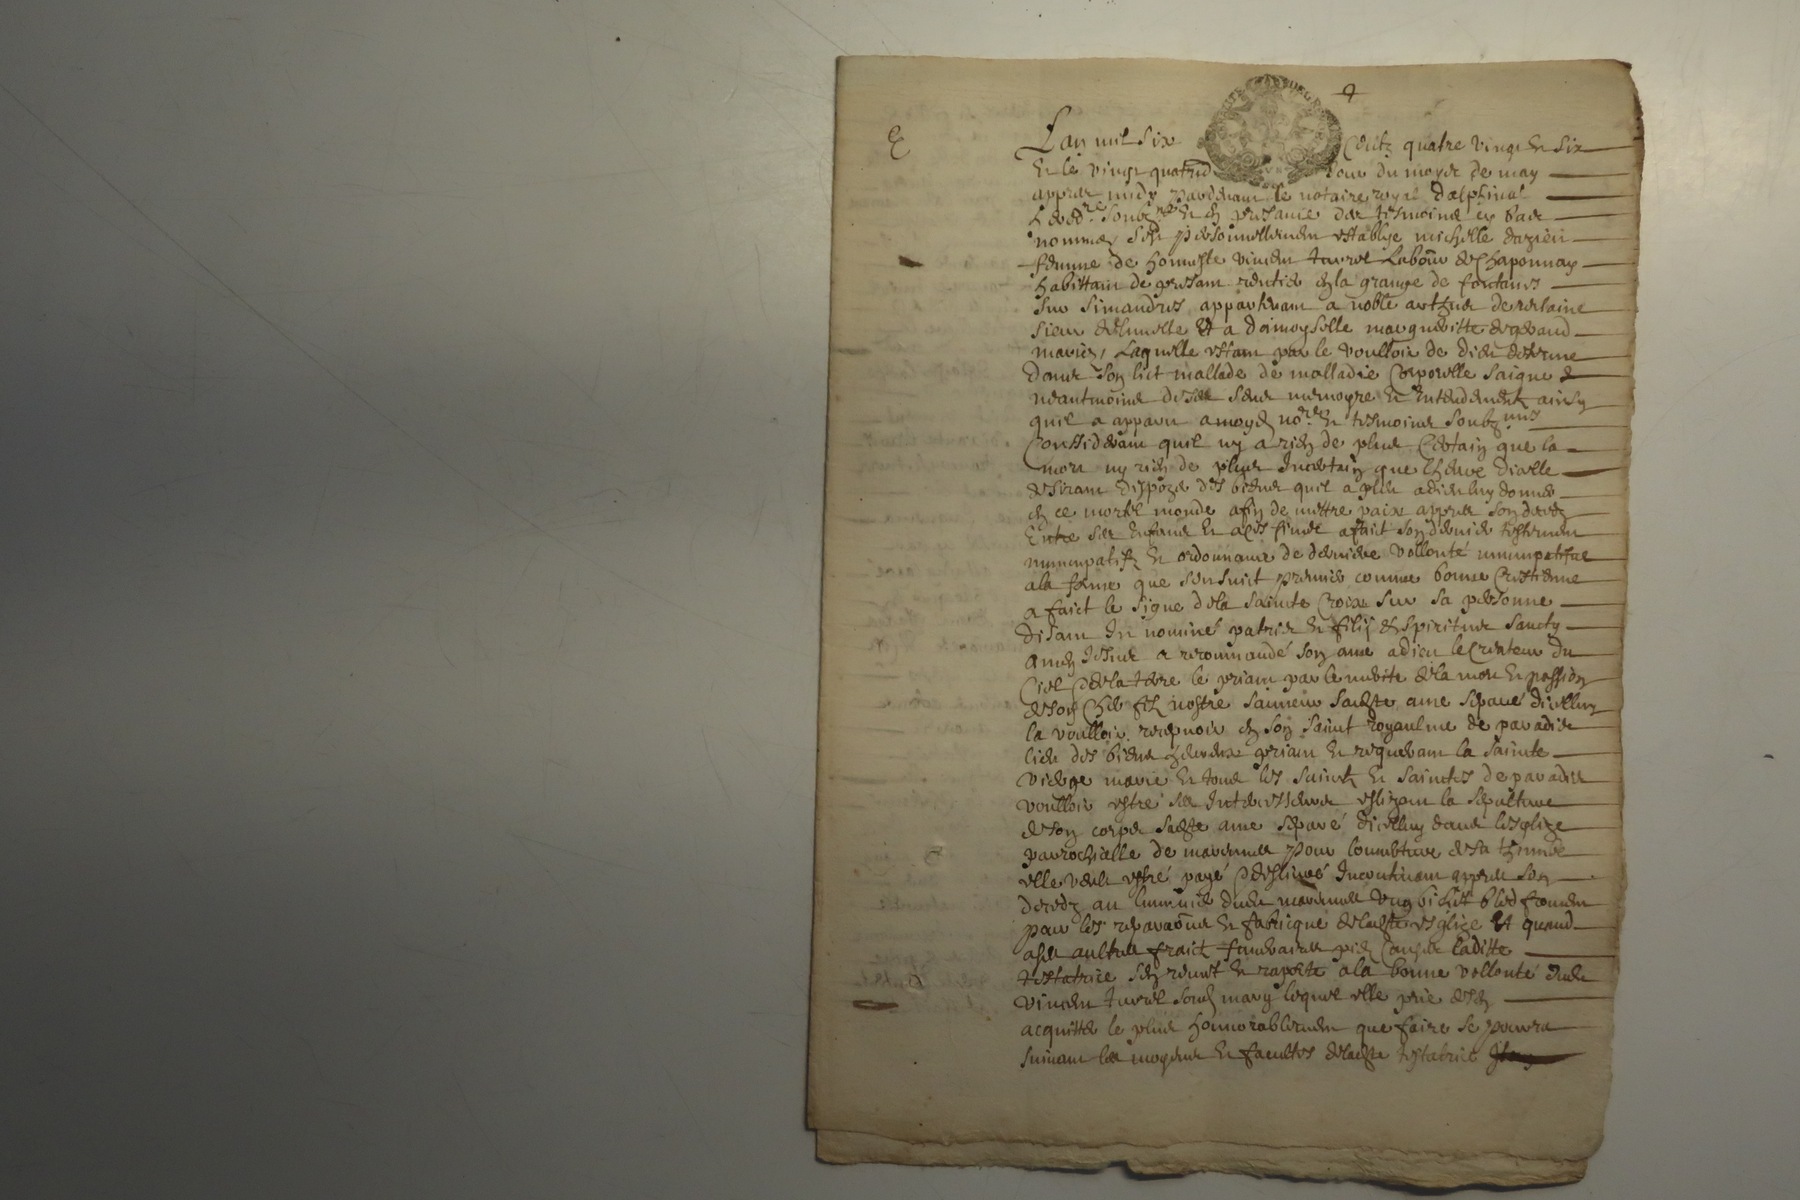 Lan mil six Centz quatre vingt et six
Et le vingt quatrie Jour du moys de may
appres midy pardevant le notaire royal dalphinal
hered.re soubz.né et en presance des tesmoins cy bas
nommes sest personnellement establye michelle
femme de honneste vincent Labour de Chaponnay
habittant de presant rentier en la grange de fontanes
sur simandres appartenant a noble
sieur et a damoyselle margueritte
maries, Laquelle estant par le voulloir de dieu detenue
dans son lict mallade de malladie Corporelle saigne
neantmoins de ses sens memoyre et Entendement ainsy
quil a apparu a moyd no.re et tesmoins soubz.nés
Conssiderant quil ny a rien de plus Certain que la
mort ny rien de plus Incertain que lheure dicelle
desirant dispozer des biens quil a pleu a dieu luy donner
en ce mortel monde afin de mettre paix appres son deces
Entre ses Enfans et a ces fins a faict son dernier testement
nunnpatifz et ordonnance de derniere vollonté nunnpatifue
a la forme que sensuict premier comme bonne Crestienne
a faict le signe de la sainte Croix sur sa personne
disant In nominé patris et filij et spiritus sancty
amen Jesus a recommandé son ame a dieu le Createur du
Ciel et de la terre le priant par le merite de la mort et passion
de son Cher filz nostre sauveur sadite ame separé dicelluy
la voulloir recepvoir en son saint royaulme de paradis
lieu des biens heureux priant et requerant la sainte
vierge marie et tous les saints et saintes de paradis
voulloir estre ses Intercesseurs eslizant la sepulture
de son corps sadite ame separé dicelluy dans lesglize
parrochialle de marennes pour
elle veult estre payé et Incontinant appres son
decedz au luminier dudit marennes ung bichet bled froment
pour les reparaons et fabricque de ladite esglize Et quand
a ses aultres fraict funeraires pies Causes laditte
testatrice sen remet et raporte a la bonne vollonté dudit
vincent soud mary lequel elle prie de sen
acquitter le plus honnorablement que faire se pourra
suivant les moyens et facultes de ladite testatrice